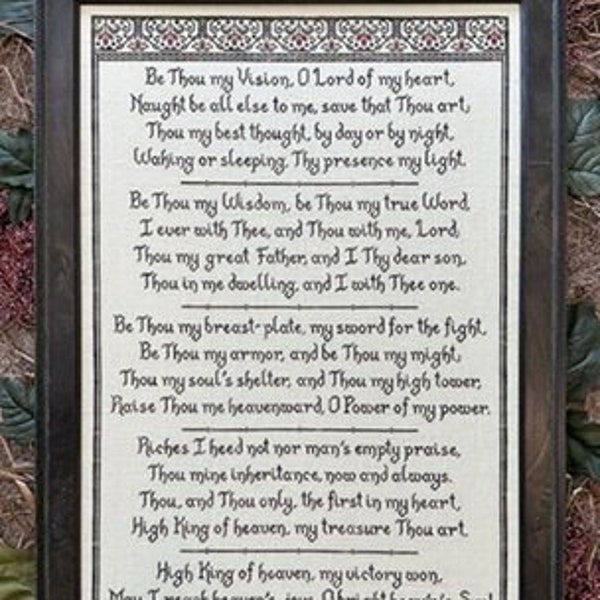 Be Thou my Vision, O Lord of my heart,
Naught be all else to me, save that Thou art;
Thou my best thought, by day or by night,
Waking or sleeping, Thy presence my light.
Be Thou my Wisdom, be Thou my true Word,
I ever with Thee, and Thou with me, Lord;
Thou my great Father, and I Thy dear son,
Thou in me dwelling, and I with Thee one.
Be Thou my breast-plate, my sword for the fight,
Be Thou my armor, and be Thou my might;
Thou my soul's shelter, and Thou my high tower,
Raise Thou me heavenward, O Power of my power.
Riches I heed not nor man's empty praise,
Thou mine inheritance, now and always.
Thou, and Thou only, the first in my heart,
High King of heaven, my treasure Thou art.
High King of heaven, my victory won,
May I reach heaven's joys, O bright heaven's Sun!